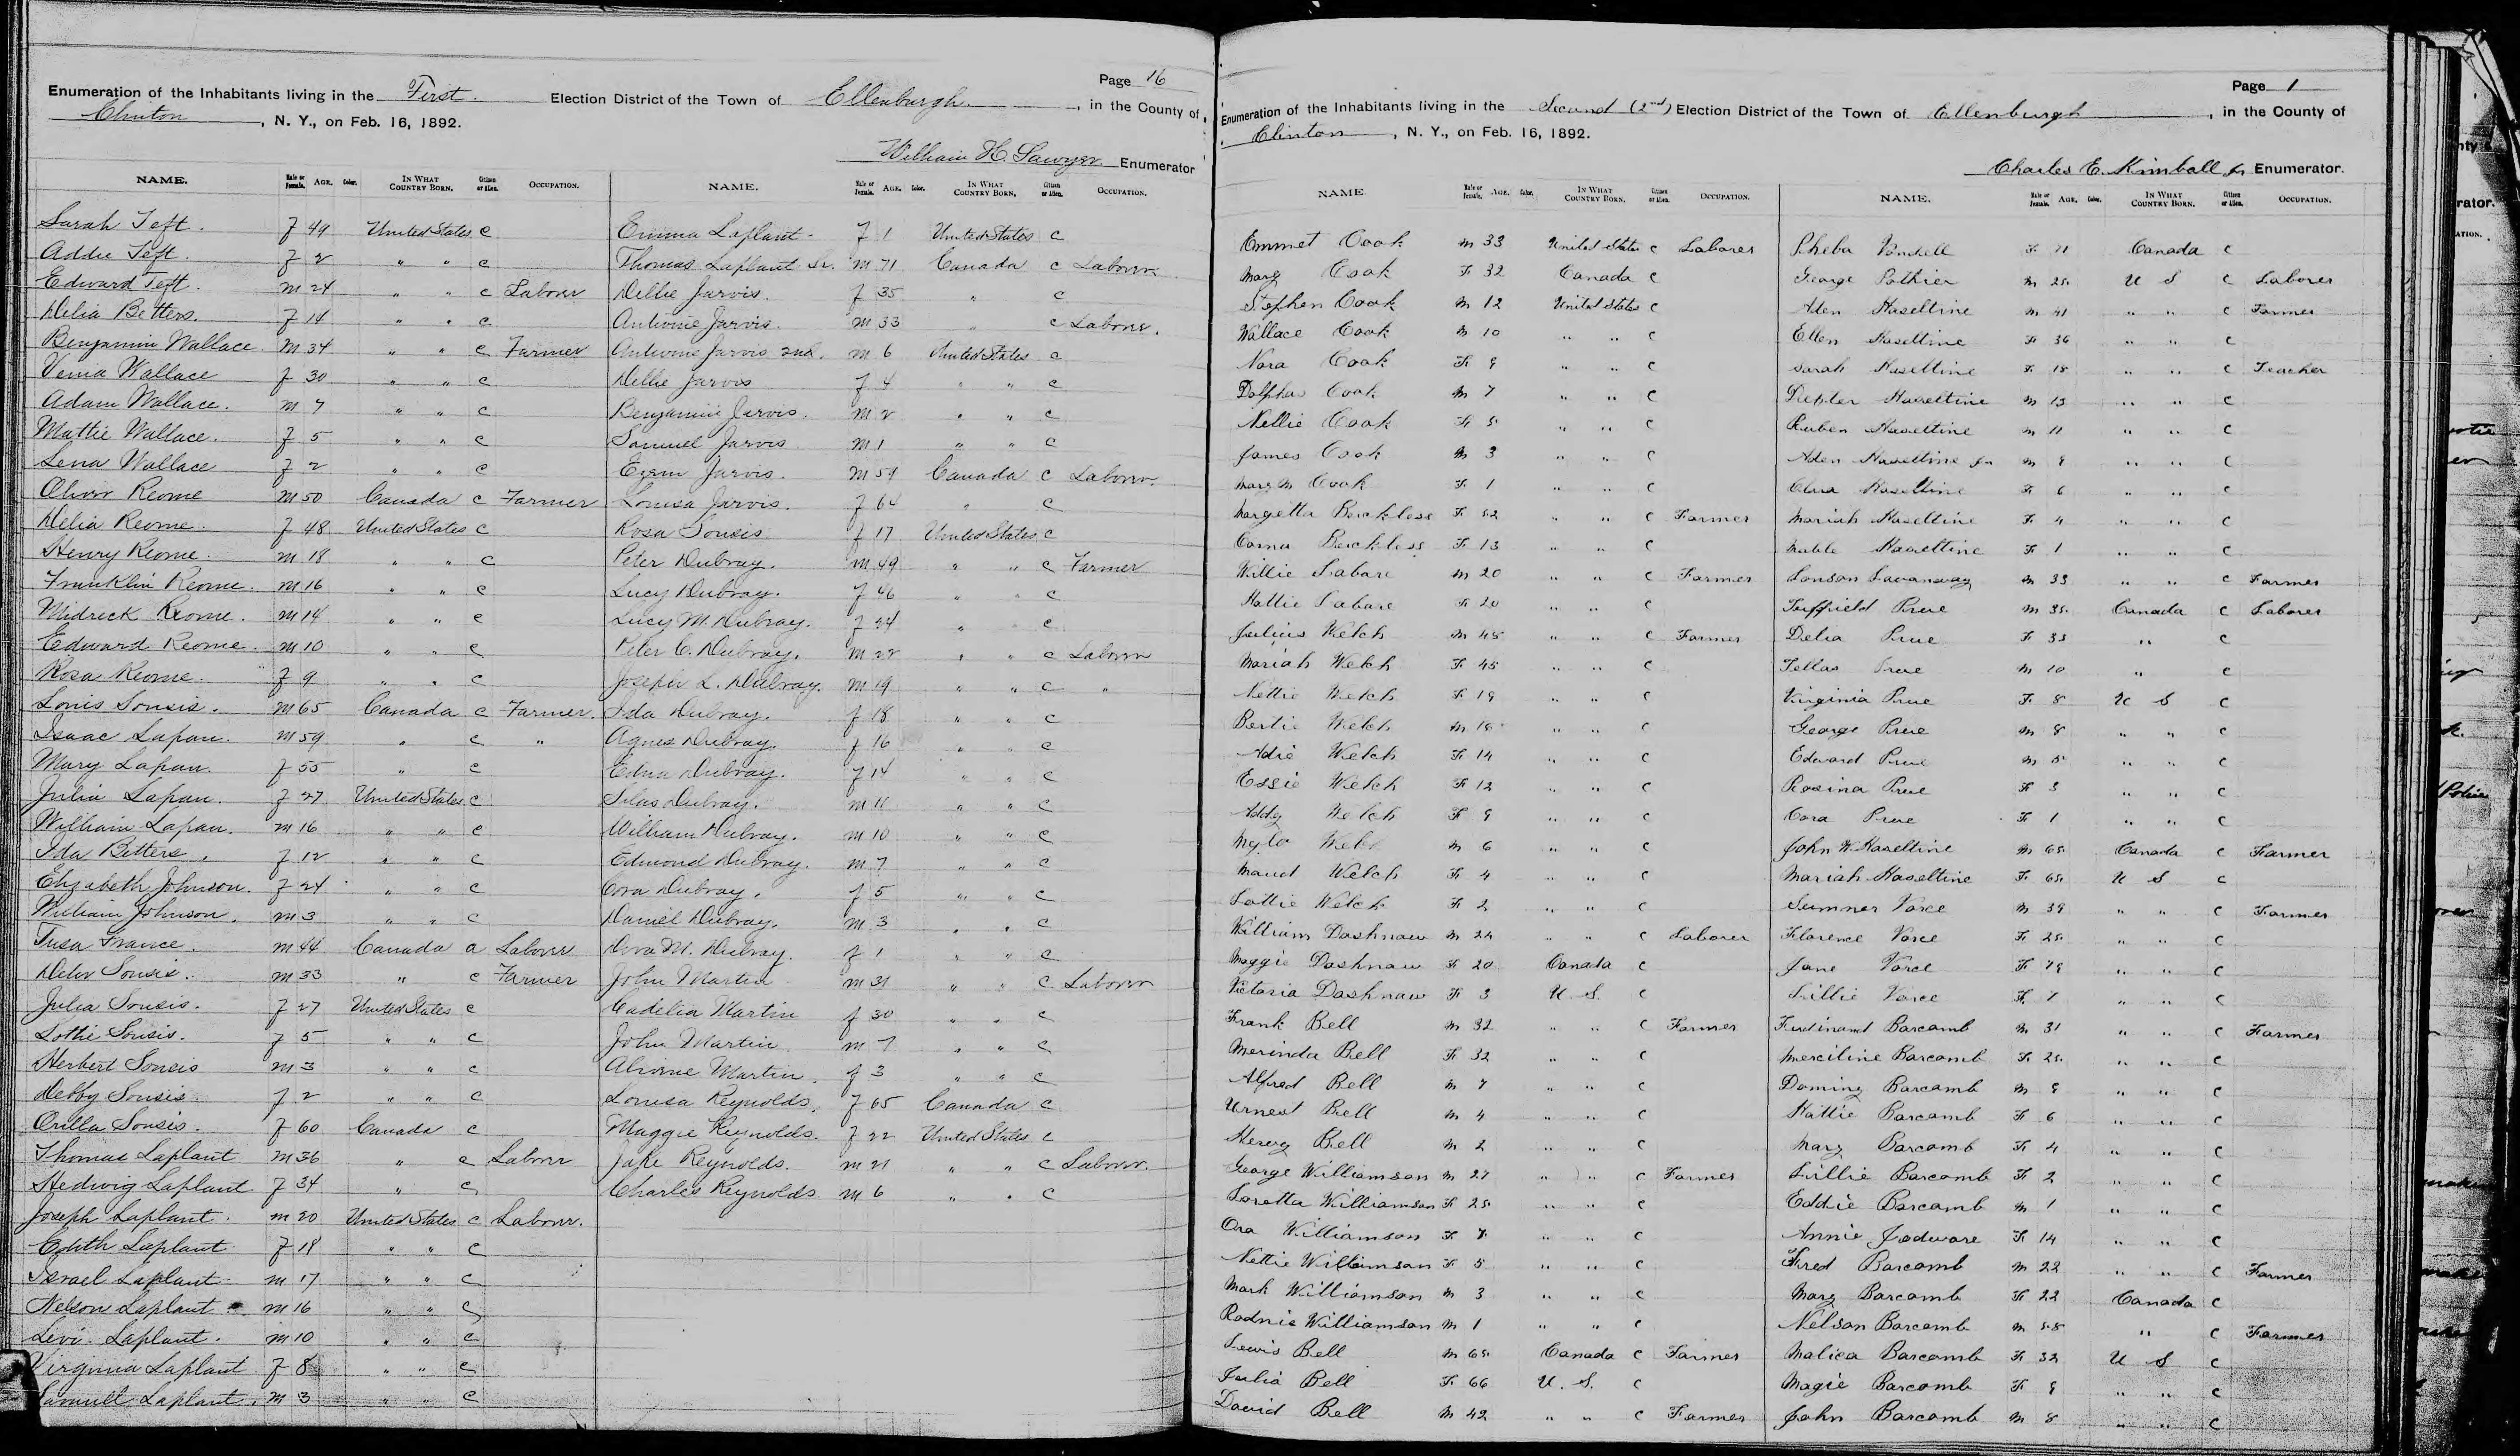 Page 16
Enumeration of the Inhabitants living in the First Election District of the Town of Ellenburgh, in the County of
Clinton, N. Y., on Feb. 16, 1892.
William H. Sawyer Enumerator
NAME. Male or Female. AGE. Color. IN WHAT COUNTRY BORN. Citizen or Alien. OCCUPATION.
Sarah Teft. f 49 United States c
Addie Teft. f 2 " " c
Edward Teft. m 24 " " c Laborer
Delia Betters. f 14 " " c
Benjamin Wallace m 34 " " c Farmer
Wallace f 30 " " c
Adam Wallace. m 7 " " c
Mattie Wallace. f 5 " " c
Lena Wallace f 2 " " c
Oliver Reome m 50 Canada c Farmer
Delia Reome. f 48 United States c
Henry Reome. m 18 " " c
Franklin Reome. m 16 " " c
Midrick Reome. m 14 " " c
Edward Reome. m 10 " " c
Rosa Reome. f 9 " " c
Louis Sousis. m 65 Canada c Farmer.
Isaac Lapan. m 59 " c "
Mary Lapan. f 55 " c
Julia Lapan. f 27 United States c
William Lapan. m 16 " " c
Ida Betters. f 12 " " c
Elizabeth Johnson. f 24 " " c
William Johnson. m 3 " " c
France. m 44 Canada a Laborer
Sousis. m 33 " c Farmer
Julia Sousis. f 27 United States c
Lottie Sousis. f 5 " " c
Herbert Sousis m 3 " " c
Debby Sousis. f 2 " " c
Orilla Sousis. f 60 Canada c
Thomas Laplant m 36 " c Laborer
Hedwig Laplant f 34 " c
Joseph Laplant. m 20 United States c Laborer.
Edith Laplant f 18 " " c
Israel Laplant. m 17 " " c
Nelson Laplant. m 16 " " c
Levi Laplant. m 10 " " c
Virginia Laplant f 8 " " c
Samuell Laplant. m 3 " " c
NAME. Male or Female. AGE. Color. IN WHAT COUNTRY BORN. Citizen or Alien. OCCUPATION.
Emma Laplant. f 1 United States c
Thomas Laplant Sr. m 71 Canada c Laborer.
Dellie Jarvis. f 35 " c
Antwine Jarvis. m 33 " c Laborer.
Antwine Jarvis 2nd. m 6 United States c
Dellie Jarvis f 4 " " c
Benjamin Jarvis. m 2 " " c
Samuel Jarvis m 1 " " c
Jarvis. m 59 Canada c Laborer.
Louisa Jarvis. f 64 " c
Rosa Sousis f 17 United States c
Peter Dubray. m 49 " " c Farmer
Lucy Dubray. f 46 " " c
Lucy M. Dubray. f 24 " c
Peter C. Dubray. m 22 " " c Laborer
Joseph L. Dubray. m 19 " " c "
Ida Dubray. f 18 " " c
Agnes Dubray. f 16 " " c
Edna Dubray. f 14 " " c
Silas Dubray. m 11 " " c
William Dubray. m 10 " " c
Edmond Dubray. m 7 " " c
Cora Dubray. f 5 " " c
Daniel Dubray. m 3 " " c
Dora M. Dubray. f 1 " " c
John Martin m 31 " " c Laborer
Cadelia Martin f 30 " " c
John Martin m 7 " " c
Martin. f 3 " " c
Louisa Reynolds. f 65 Canada c
Maggie Reynolds. f 22 United States c
Jake Reynolds. m 21 " " c Laborer.
Charles Reynolds m 6 " " c
Page 1
Enumeration of the Inhabitants living in the Second (2nd) Election District of the Town of Ellenburgh, in the County of
Clinton, N. Y., on Feb. 16, 1892.
Charles E. Kimball Jr Enumerator.
NAME Male or Female. AGE. Color. IN WHAT COUNTRY BORN. Citizen or Alien. OCCUPATION.
Emmet Cook m 33 United States c Laborer
Mary Cook F 32 Canada c
Stephen Cook m 12 United States c
Wallace Cook m 10 " " c
Nora Cook F 9 " " c
Dolphus Cook m 7 " " c
Nellie Cook F 5 " " c
James Cook m 3 " " c
Mary M Cook F 1 " " c
Margetta Beickless F 52 " " c Farmer
Corna Beickless F 13 " " c
Willie Labare m 20 " " c Farmer
Hattie Labare F 20 " " c
Julius Welch m 45 " " c Farmer
Mariah Welch F 45 " " c
Nettie Welch F 19 " " c
Bertie Welch m 15 " " c
Adie Welch F 14 " " c
Essie Welch F 12 " " c
Addy Welch F 9 " " c
Mylo Welch m 6 " " c
Maud Welch F 4 " " c
Lottie Welch F 2 " " c
William Dashnaw m 24 " " c Laborer
Maggie Dashnaw F 20 Canada c
Victoria Dashnaw F 3 U. S. c
Frank Bell m 32 " " c Farmer
Merinda Bell F 32 " " c
Alfred Bell m 7 " " c
Urnest Bell m 4 " " c
Hervey Bell m 2 " " c
George Williamson m 27 " " c Farmer
Loretta Williamson F 25 " " c
Ora Williamson F 7 " " c
Nettie Williamson F 5 " " c
Mark Williamson m 3 " " c
Rodnie Williamson m 1 " " c
Lewis Bell m 65 Canada c Farmer
Julia Bell F 66 U. S. c
David Bell m 42 " " c Farmer
NAME. Male or Female. AGE. Color. IN WHAT COUNTRY BORN. Citizen or Alien. OCCUPATION.
Pheba F 71 Canada c
George Pothier m 25 U S c Laborer
Aden Haseltine m 41 " " c Farmer
Ellen Haseltine F 36 " " c
Sarah Haseltine F 18 " " c Teacher
Haseltine m 13 " " c
Ruben Haseltine m 11 " " c
Aden Haseltine Jr m 8 " " c
Haseltine F 6 " " c
Mariah Haseltine F 4 " " c
Mable Haseltine F 1 " " c
Lonson Lavanway m 33 " " c Farmer
Tuffield Prue m 35 Canada c Laborer
Delia Prue F 33 " c
Tellas Prue m 10 " c
Virginia Prue F 8 U S c
George Prue m 8 " " c
Edward Prue m 5 " " c
Rosina Prue F 3 " " c
Cora Prue F 1 " " c
John W. Haseltine m 65 Canada c Farmer
Mariah Haseltine F 65 U S c
Sumner Vorce m 39 " " c Farmer
Florence Vorce F 25 " " c
Jane Vorce F 79 " " c
Lillie Vorce F 7 " " c
Ferdinand Barcomb m 31 " " c Farmer
Merciline Barcomb F 25 " " c
Doming Barcomb m 8 " " c
Hattie Barcomb F 6 " " c
Mary Barcomb F 4 " " c
Lillie Barcomb F 2 " " c
Eddie Barcomb m 1 " " c
Annie Jodware F 14 " " c
Fred Barcomb m 22 " " c Farmer
Mary Barcomb F 22 Canada c
Nelson Barcomb m 55 " c Farmer
Malica Barcomb F 32 U S c
Magie Barcomb F 9 " " c
John Barcomb m 8 " " c